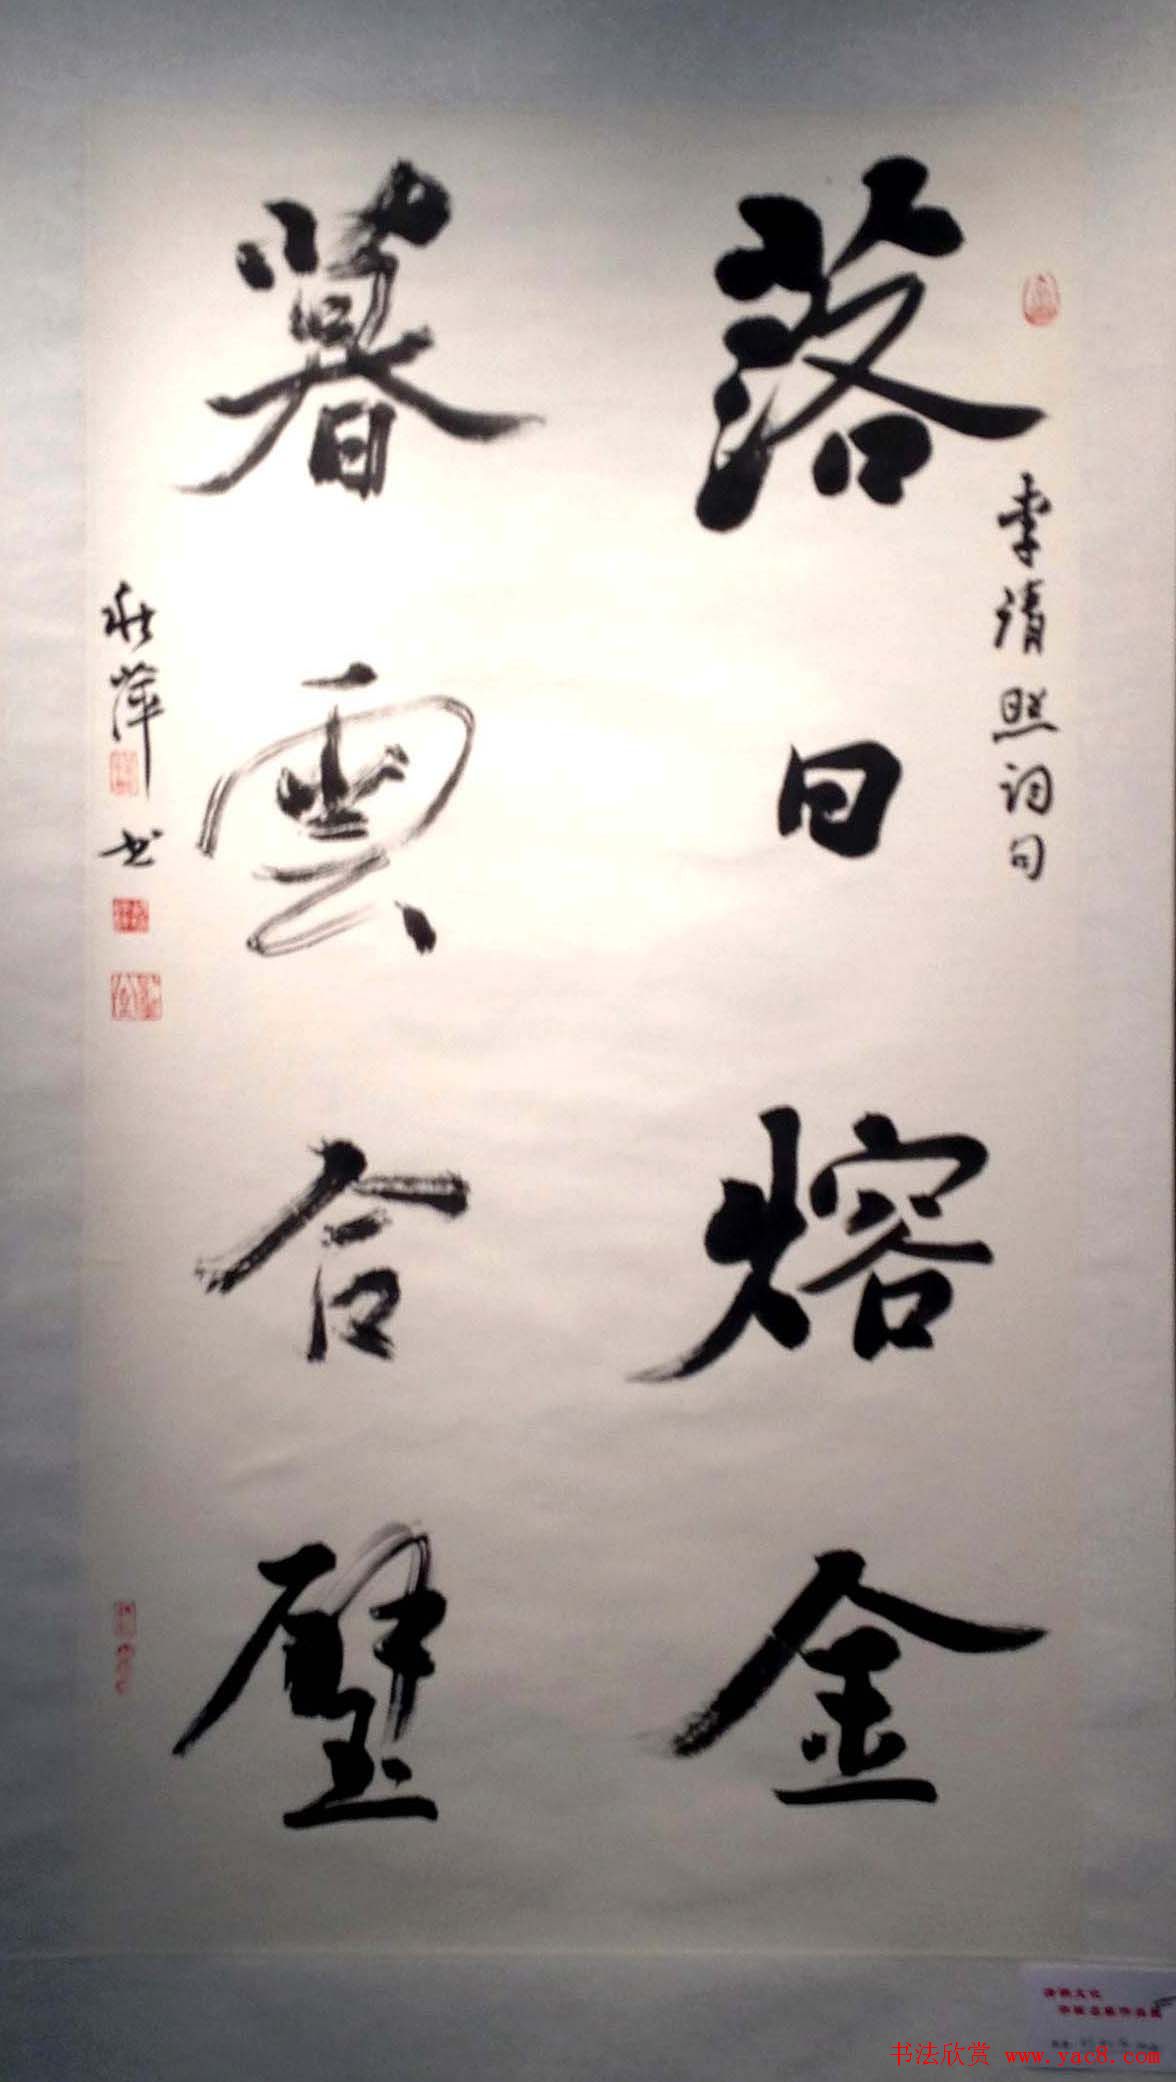 李清照词句
落日熔金
暮雲合璧
秋萍书
书法欣赏 www.yac8.com